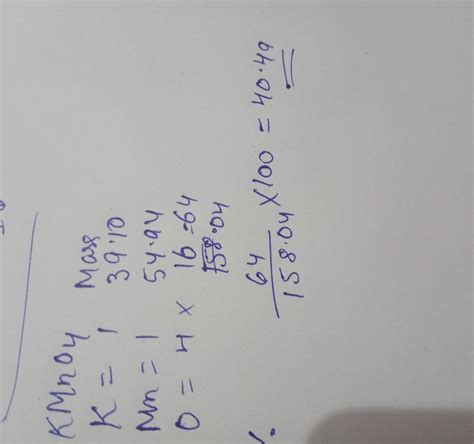 KMnO4 Mass
K = 1 39.10
Mn = 1 54.94
O = 4 × 16 = 64
158.04
% 64/158.04 × 100 = 40.49